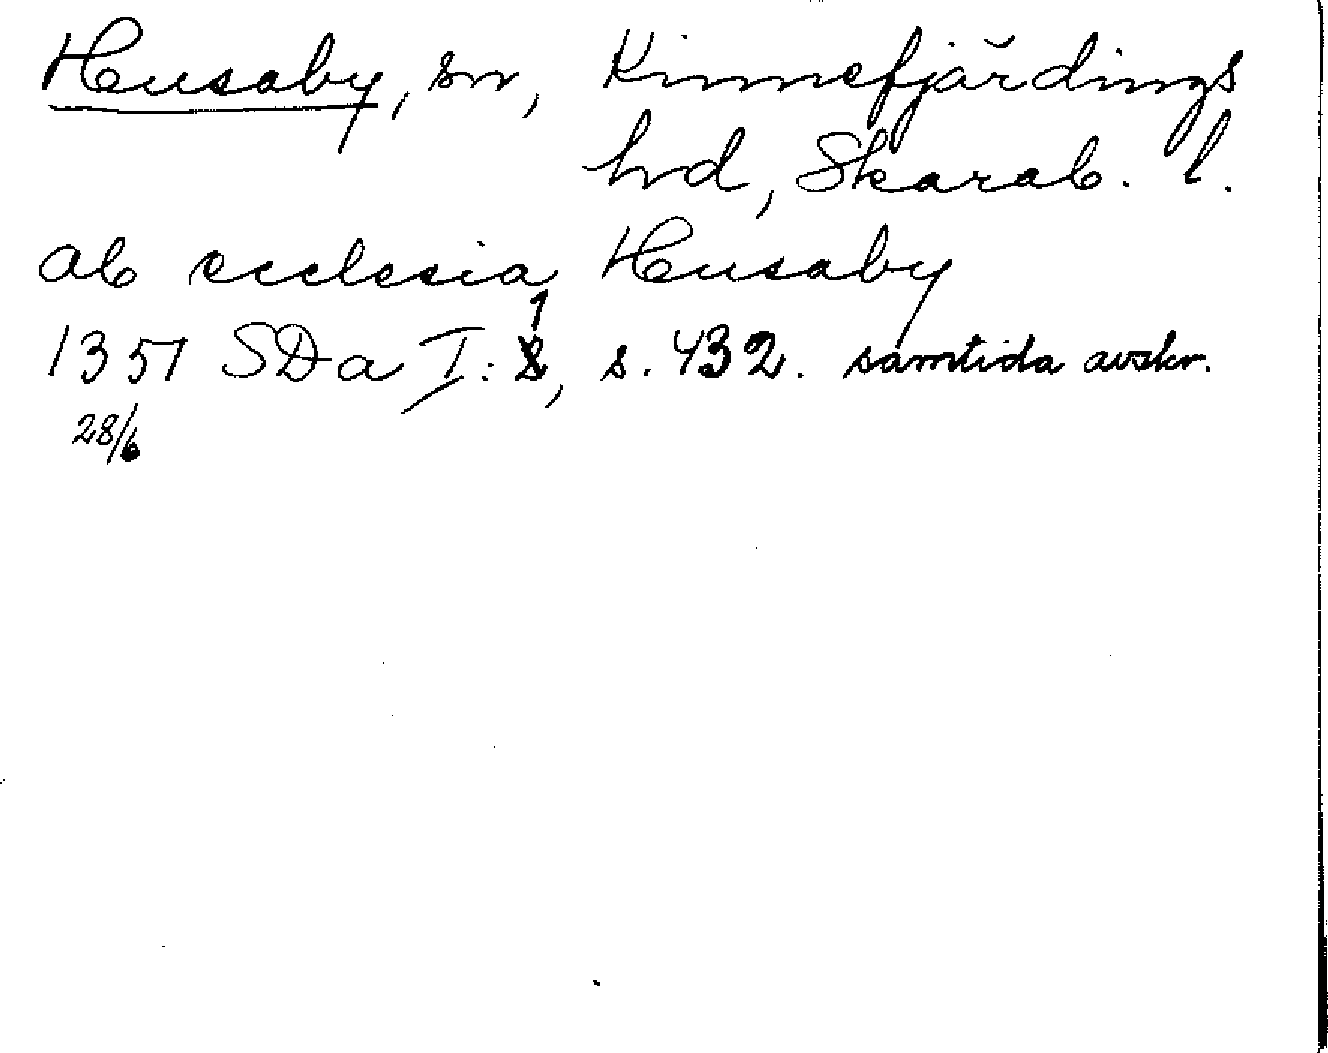 Husaby, sn, Kinnefjärdings
hd, Skarab. l.
ab ecclesia Husaby
1351 SDa I: 1, s. 432. samtida avskr.
28/6